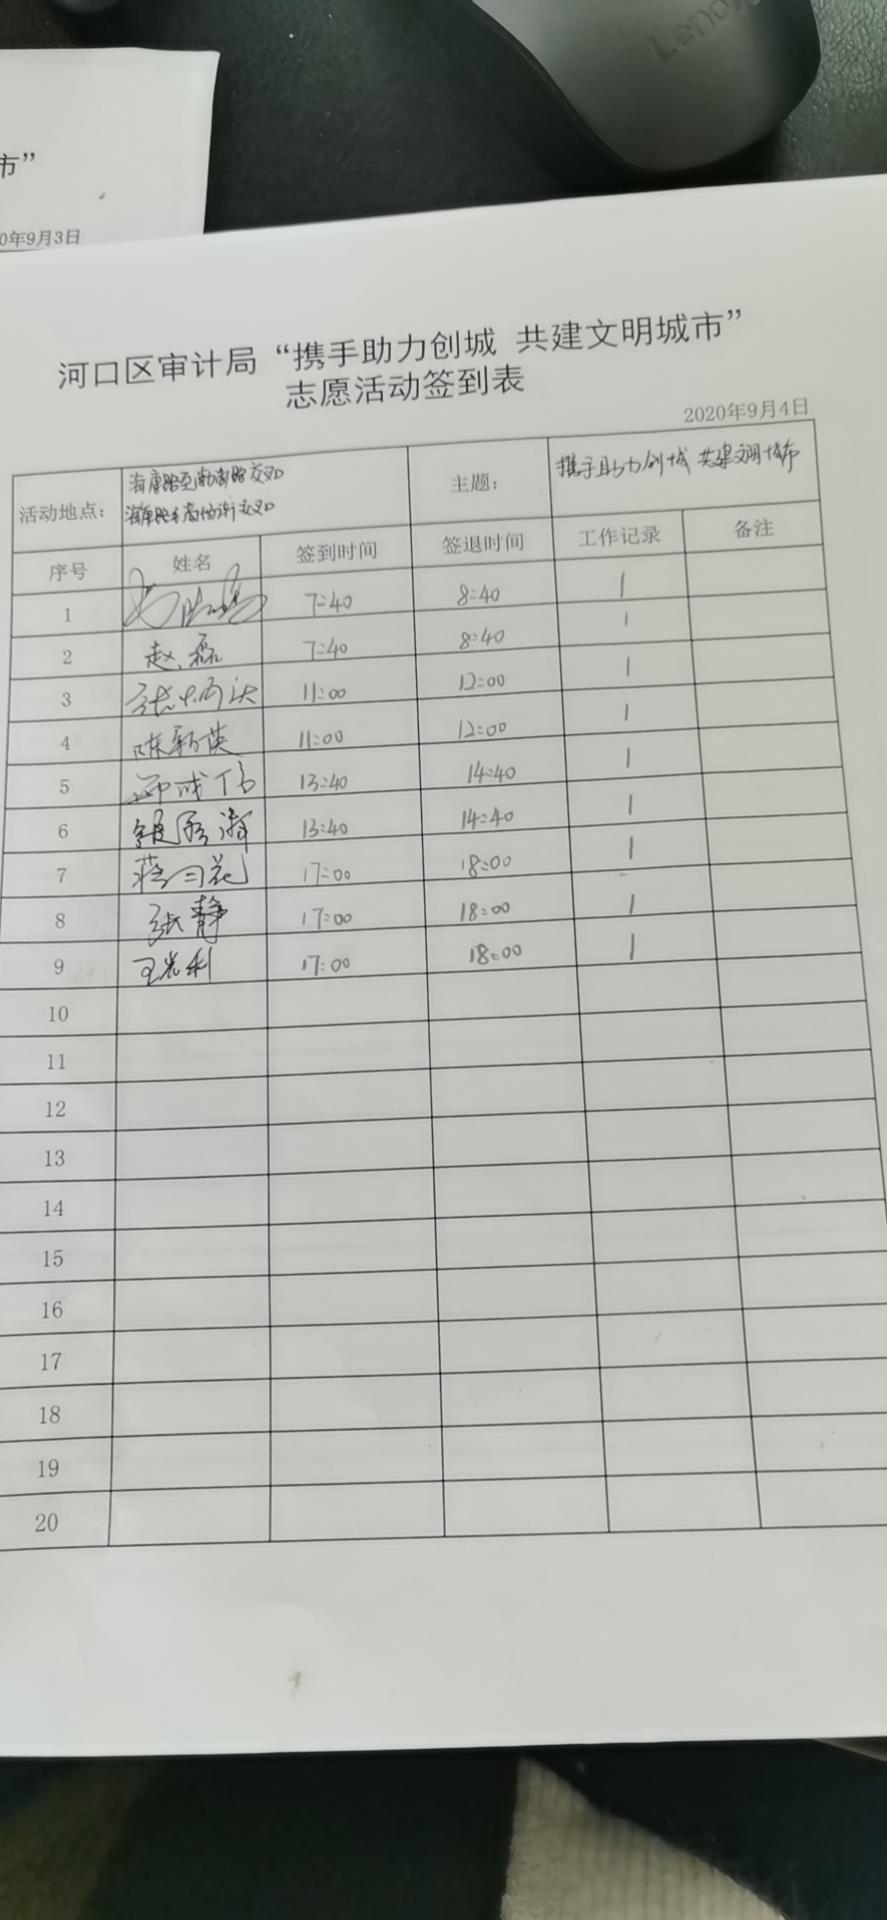 Lenovo
市”
0年9月3日
河口区审计局“携手助力创城 共建文明城市”
志愿活动签到表
2020年9月4日
活动地点： 主题： 携手助力创城 共建文明城市
序号 姓名 签到时间 签退时间 工作记录 备注
1 7:40 8:40 1
2 赵磊 7:40 8:40 1
3 11:00 12:00 1
4 陈新英 11:00 12:00 1
5 13:40 14:40 1
6 13:40 14:40 1
7 17:00 18:00 1
8 张静 17:00 18:00 1
9 17:00 18:00 1
10
11
12
13
14
15
16
17
18
19
20